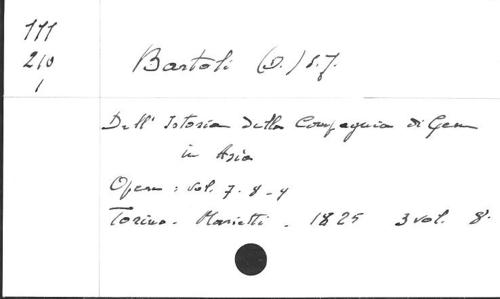 111
210
1
Bartoli (D.) S.J.
Dell' Istoria della Compagnia di Gesu
in Asia
Opere: vol. 7-8-9
Torino - Marietti - 1825 3 vol. 8.